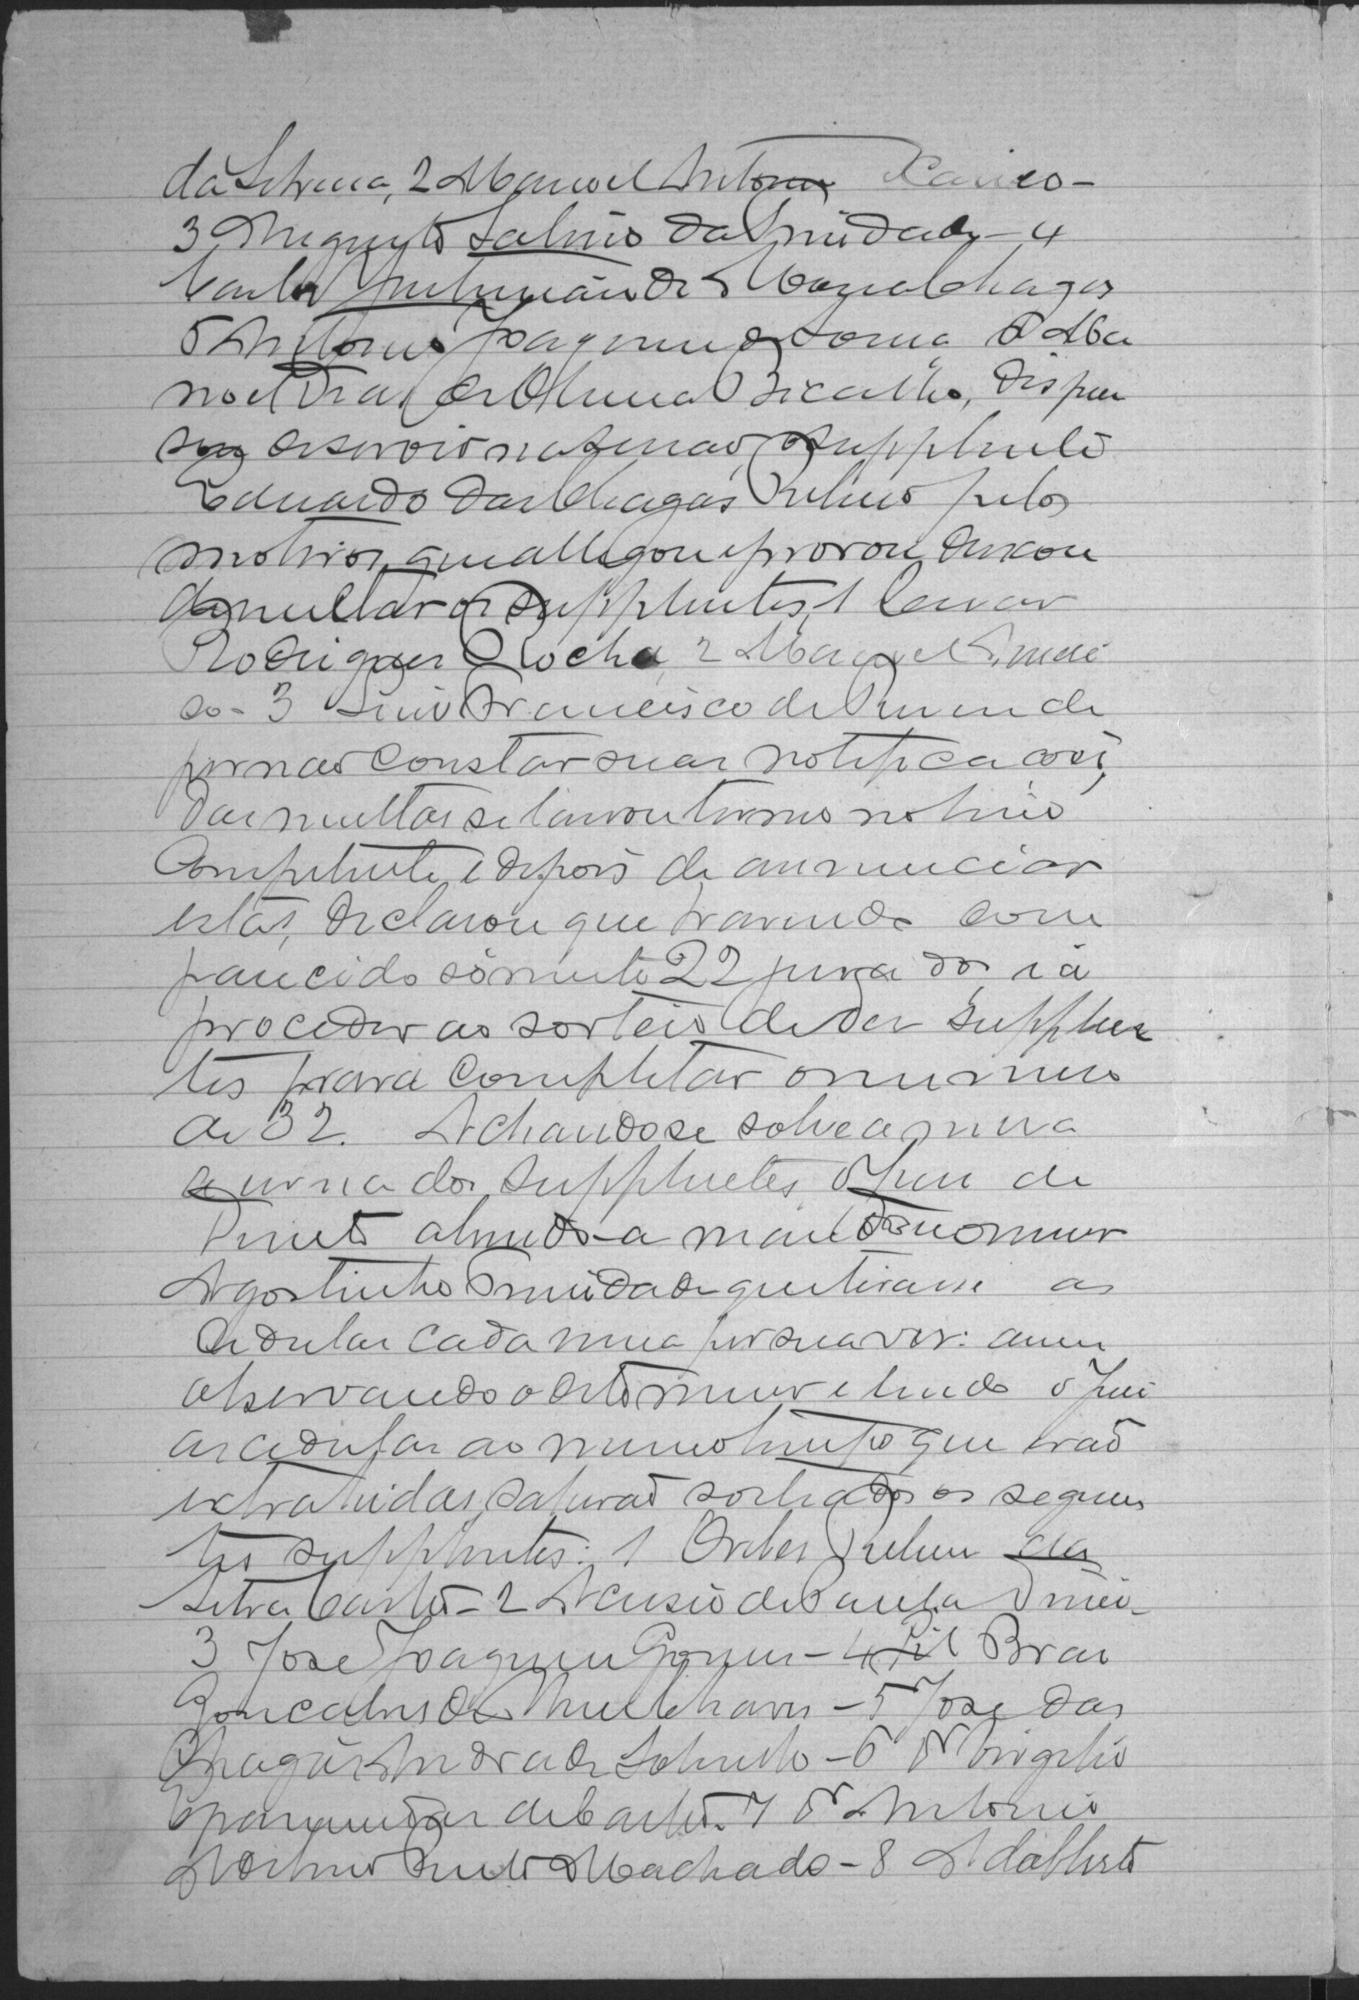 da Silveira, 2 Manoel Antonio Xavier -
3 Augusto Sabino da Trindade - 4
Carlos de Moraes Chagas
5 Antonio Joaquim de Souza, 6 Ma
noel Dias de Oliveira Bicalho, dispen
sou do serviço na sessão, o supplente
Eduardo das Chagas Ribeiro pelos
motivos que allegou e provou, deixou
de multar os supplentes, 1 Cesar
Rodrigues Rocha, 2 Manoel
so - 3 Luiz Francisco de Rezende
por não constar suas notificações,
das multas se lavrou termo no livro
competente e depois de annunciar
estas, declarou que havendo com
parecido sómente 22 jurados, ia
proceder ao sorteio de dez supplen
tes para completar o numero
de 32. Achando-se sobre a mesa
a urna dos supplentes, o Juiz de
Direito abrindo-a mandou o menor
Agostinho Trindade que tirasse as
cedulas cada uma por sua vez: assim
observando o dito menor e lendo o Juiz
as cedulas ao mesmo tempo que erão
extrahidas, sahirão sorteados os seguin
tes supplentes: 1 Ribeiro da
Silva Castro - 2 Acusio de Paula Diniz -
3 José Joaquim Gomes - 4 Gil Braz
Gonçalves de Chaves - 5 José das
Chagas Andrade Sobrinho - 6 Dr Virgilio
Epaminondas de Castro. 7 Dr Antonio
Machado - 8 Adalberto